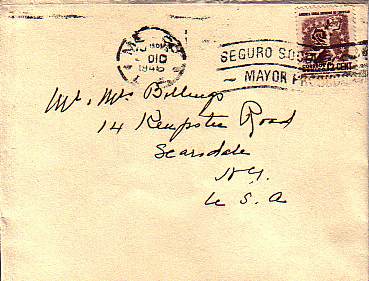 DIC
1946
SEGURO SO
~ MAYOR P
CENT
Mr. & Mrs Billings
14 Kempster Road
Scarsdale
N.Y.
U S. A